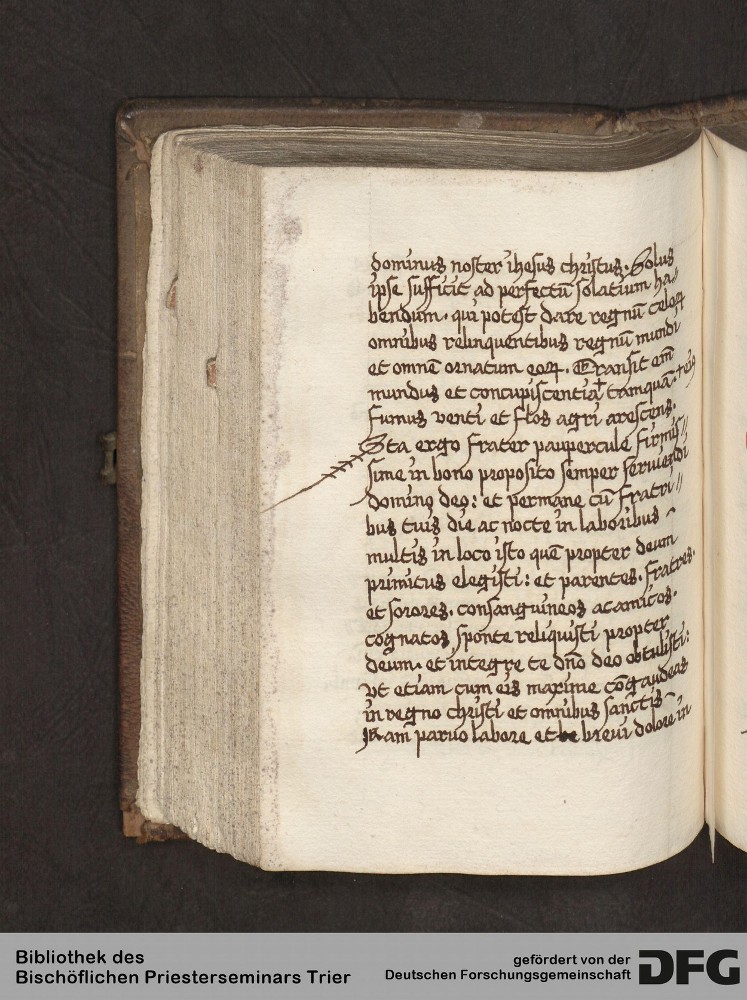 dominus noster ihesus christus. Solus
ipse sufficit ad perfectū solatium ha⸗
bendum. qui potest dare regnū celoꝝ
omnibus relinquentibus regnū mundi
et omnē ornatum eoꝝ. Transit em̄
mundus et concupiscentia † tamquā. † eiꝰ
fumus venti et flos agri arescens.
Sta ergo frater paupercule firmis⸗
sime in bono proposito semper serviendi
domino deo: et permane cū fratri⸗
bus tuis die ac nocte in laboribus
multis in loco isto quē propter deum
primitus elegisti: et parentes. fratres.
et sorores. consanguineos ac amicos.
cognatos sponte reliquisti propter
deum. et integre te dn̄o deo obtulisti:
Vt etiam cum eis maxime cōgaudeas
in regno christi et omnibus sanctis
Nam parvo labore et brevi dolore in
Bibliothek des
Bischöflichen Priesterseminars Trier
gefördert von der
Deutschen Forschungsgemeinschaft
DFG